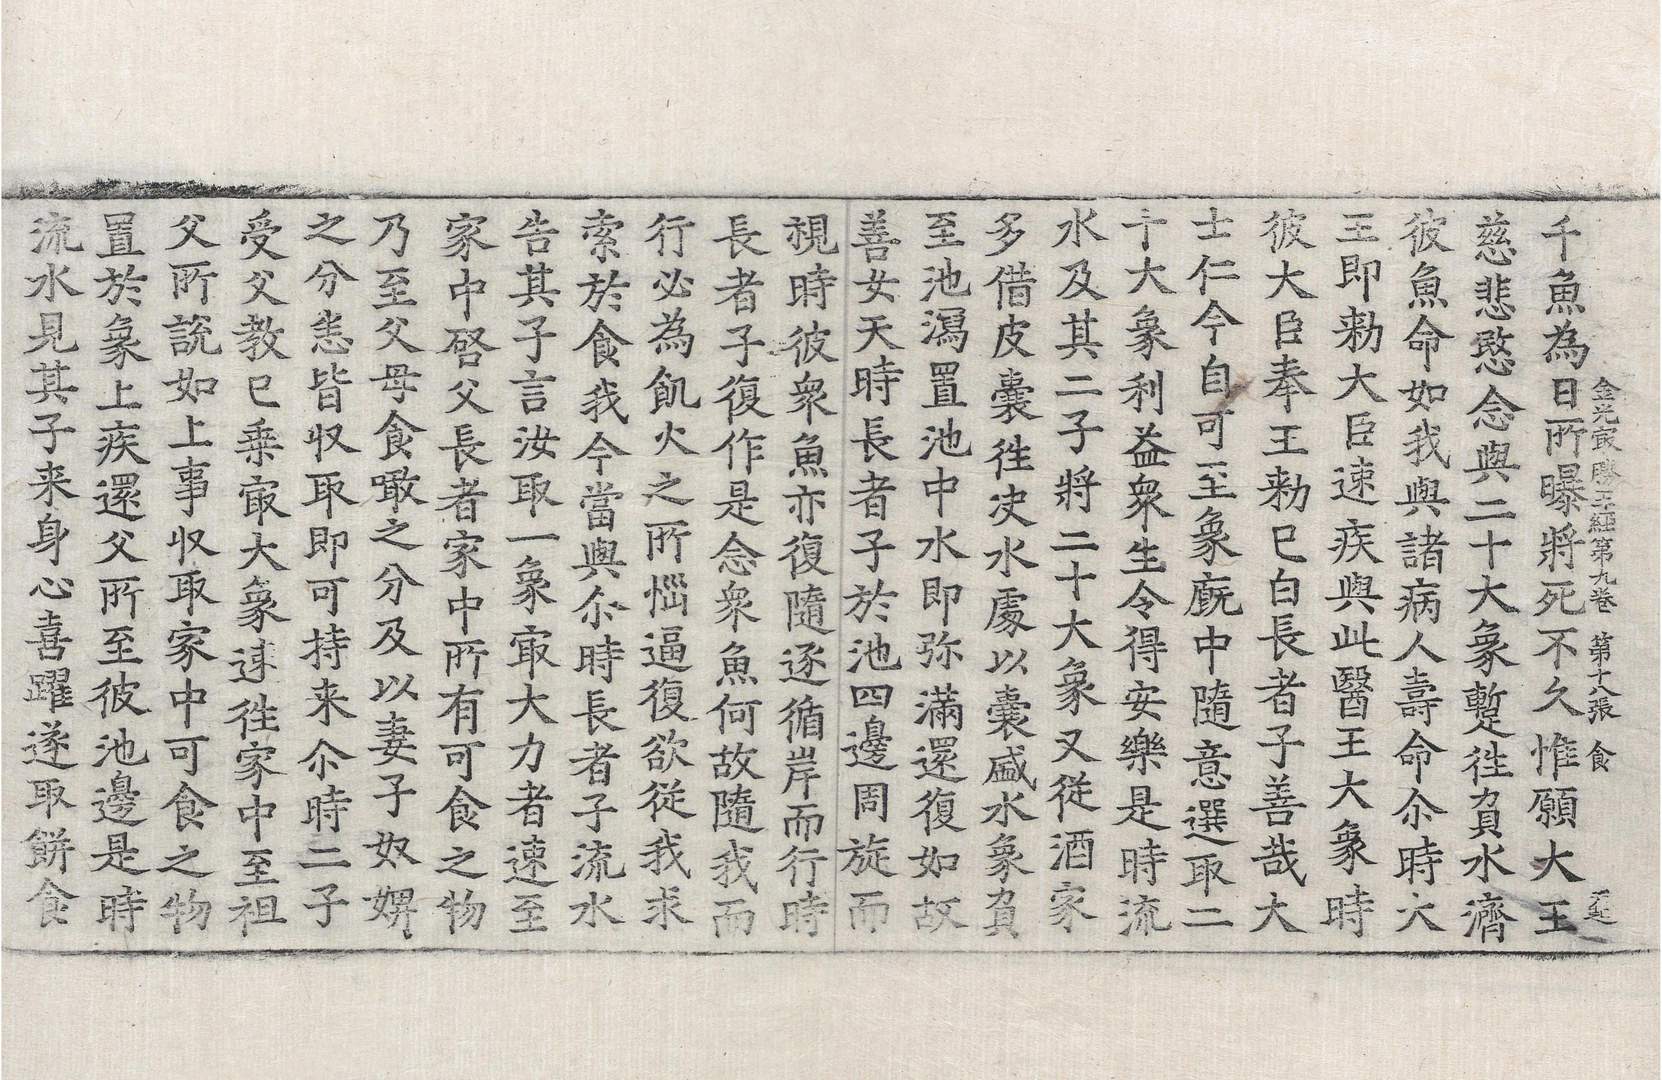 金光㝡勝王經第九卷 第十八張 食
千魚為日所曝將死不久惟願大王
慈悲愍念與二十大象蹔徃負水濟
彼魚命如我與諸病人壽命尒時大
王即勑大臣速疾與此醫王大象時
彼大臣奉王勑已白長者子善哉大
士仁今自可至象廐中隨意選取二
十大象利益衆生令得安樂是時流
水及其二子將二十大象又從酒家
多借皮囊徃决水處以囊盛水象負
至池瀉置池中水即弥滿還復如故
善女天時長者子於池四邊周旋而
視時彼衆魚亦復隨逐循岸而行時
長者子復作是念衆魚何故隨我而
行必為飢火之所惱逼復欲從我求
索於食我今當與尒時長者子流水
告其子言汝取一象㝡大力者速至
家中啓父長者家中所有可食之物
乃至父母食噉之分及以妻子奴婢
之分悉皆収取即可持来尒時二子
受父教已乗㝡大象速徃家中至祖
父所說如上事収取家中可食之物
置於象上疾還父所至彼池邊是時
流水見其子来身心喜躍遂取餅食